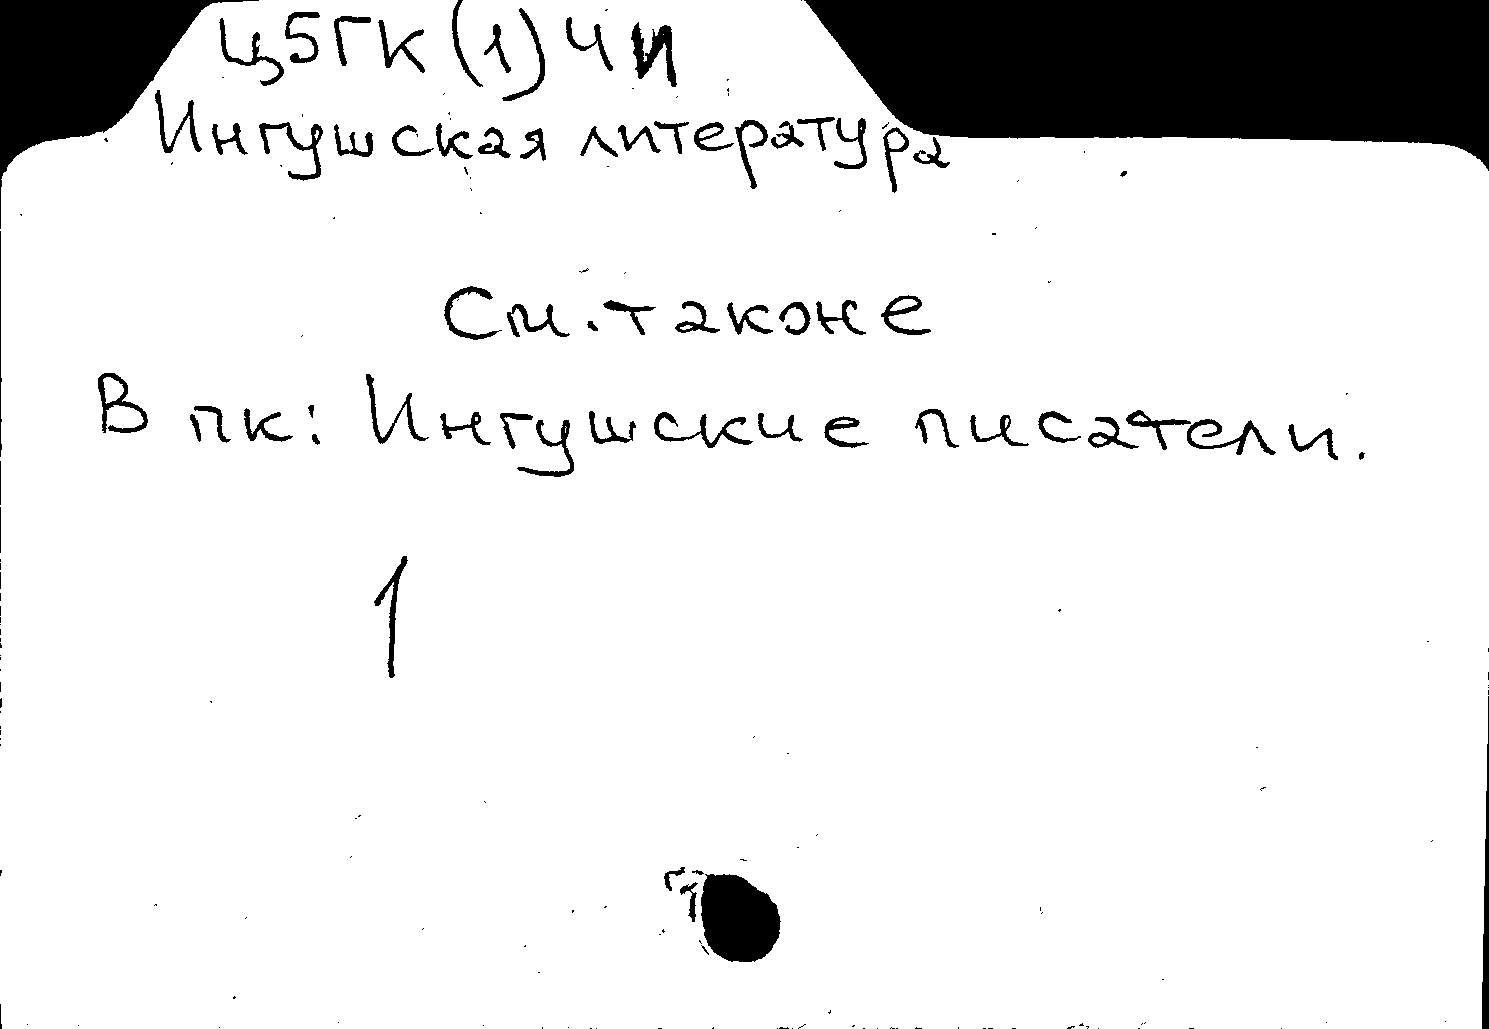 Ц5ГК(1)ЧИ
Ингушская литература
См. также
В пк: Ингушские писатели.
1